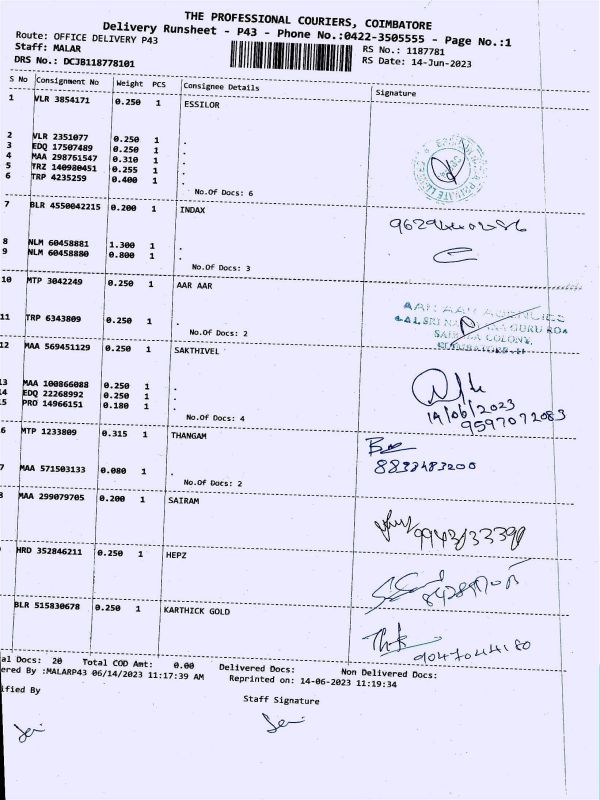 THE PROFESSIONAL COURIERS, COIMBATORE
Delivery Runsheet - P43 - Phone No.:0422-3505555 - Page No.:1
Route: OFFICE DELIVERY P43
RS No.: 1187781
Staff: MALAR
RS Date: 14-Jun-2023
DRS No.: DCJB118778101
S No Consignment No Weight PCS Consignee Details Signature
1 VLR 3854171 0.250 1 ESSILOR
2 VLR 2351077 0.250 1 .
3 EDQ 17507489 0.250 1 .
4 MAA 298761547 0.310 1 .
5 TRZ 140980451 0.255 1 .
6 TRP 4235259 0.400 1 .
No.Of Docs: 6
7 BLR 4550042215 0.200 1 INDAX
8 NLM 60458881 1.300 1 .
9 NLM 60458880 0.800 1 .
No.Of Docs: 3
10 MTP 3042249 0.250 1 AAR AAR
AAR AAR AGENCIES
COLONY,
11 TRP 6343809 0.250 1 .
No.Of Docs: 2
12 MAA 569451129 0.250 1 SAKTHIVEL
13 MAA 100866088 0.250 1 .
14 EDQ 22268992 0.250 1 .
15 PRO 14966151 0.180 1 .
No.Of Docs: 4
14/06/2023
9597072083
6 MTP 1233809 0.315 1 THANGAM
8838483200
7 MAA 571503133 0.080 1 .
No.Of Docs: 2
8 MAA 299079705 0.200 1 SAIRAM
HRD 352846211 0.250 1 HEPZ
BLR 515830678 0.250 1 KARTHICK GOLD
9047044180
al Docs: 20 Total COD Amt: 0.00 Delivered Docs: Non Delivered Docs:
ered By :MALARP43 06/14/2023 11:17:39 AM Reprinted on: 14-06-2023 11:19:34
ified By Staff Signature